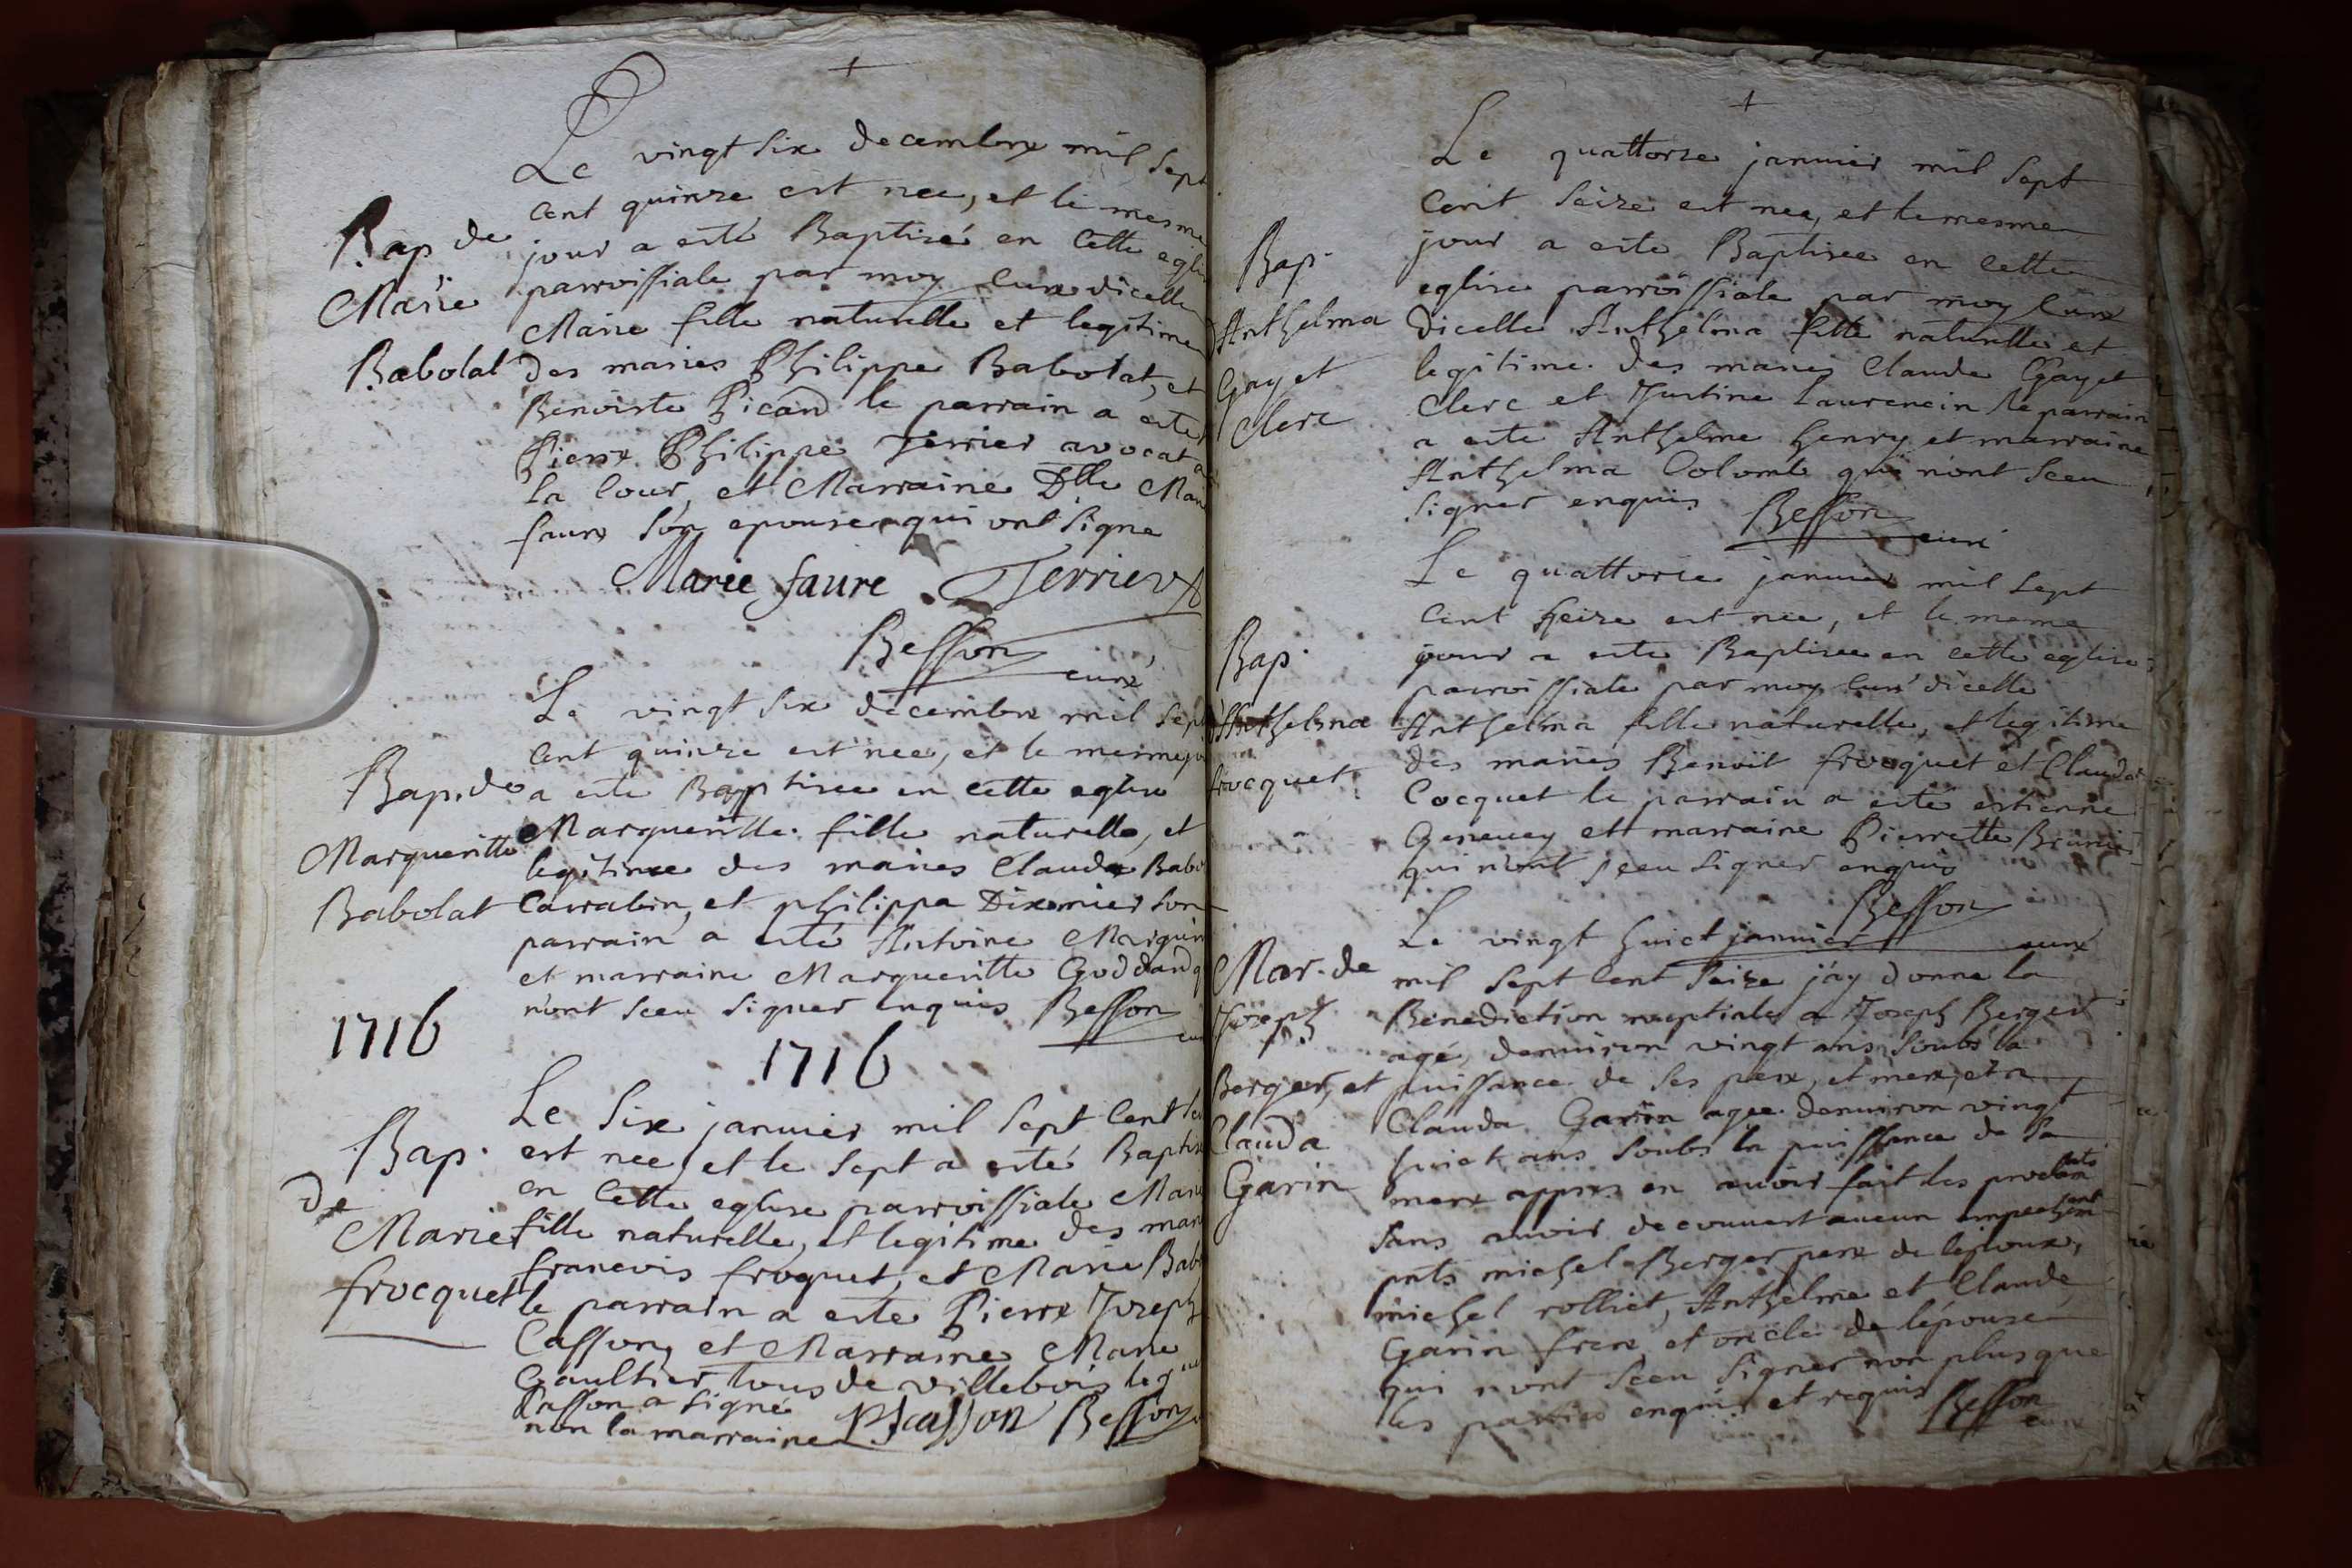 +
Le vingt six decembre mil sept
cent quinze est nee, et le mesme
jour a esté Baptizé en cette eglise
parroissiale par moy Curé dicelle
Marie fille naturelle et legitime
des mariés Philippe Babolat, et
Benoiste Picard le parrain a esté
Pierre Philippe Terrier avocat a
la Cour, et Marraine Dlle Marie
faure son epouse qui ont signe
Bap de
Marie
Babolat
Marie faure Terrier
Besson
curé
Le vingt six decembre mil sept
cent quinze est nee, et le mesme jour
a esté Baptisee en cette eglise
Margueritte fille naturelle, et
legitime des mariés Claude Babolat
Carrabin, et philippa Diximier son
parrain a esté Antoine Marquin
et marraine Marguerite Goddard q
n'ont sceu signer enquis Besson
curé
Bap. de
Margueritte
Babolat
1716
1716
Le six janvier mil sept cent
est nee, et le sept a esté Baptisee
en cette eglise parroissiale Marie
fille naturelle, et legitime des mariés
francois froquet, et Marie Bab
le parrain a esté Pierre Joseph
Casson, et Marraine Marie
Gaultier tous de villebois leq
Casson a signé
non la marraine PJcasson Besson
Bap.
de
Marie
frocquet
+
Le quattorze janvier mil sept
Cent seize est nee, et le mesme
jour a esté Baptisee en cette
eglise parroissiale par moy Curé
dicelle Anthelma fille naturelle et
legitime des mariés Claude Gayet
Clerc et Justine Laurencin le parrain
a esté Anthelme henry et marraine
Anthelma Colomb qui n'ont sceu
signer enquis Besson
curé
Bap.
Anthelma
Gayet
Clerc
Le quattorze janvier mil sept
Cent seize est née, et le meme
jour a esté Baptisee en cette eglise
parroissiale par moy Curé dicelle
Anthelma fille naturelle, et legitime
des mariés Benoit frocquet et Clauda
Cocquet le parrain a esté estienne
Genevey et marraine Pierrette Brunier
qui n'ont sceu signer enquis
Besson
curé
Bap.
Anthelma
frocquet
Le vingt huict janvier
mil sept cent seize j'ay donne la
Benediction nuptiale a Joseph Berger
agé denviron vingt ans soubs la
puissance de ses pere, et mere, et a
Clauda Garin agee denviron vingt
huict ans soubs la puissance de sa
mere appres en avoir fait les proclam
sans avoir decouvert aucun empechement
pnts michel Berger pere de lépoux,
michel rolliet, Anthelme et Claude
Garin frere, et oncle de lépouse
qui n'ont sceu signer non plus que
les parties enquis et requis Besson
curé
Mar. de
Joseph
Berger, et
Clauda
Garin